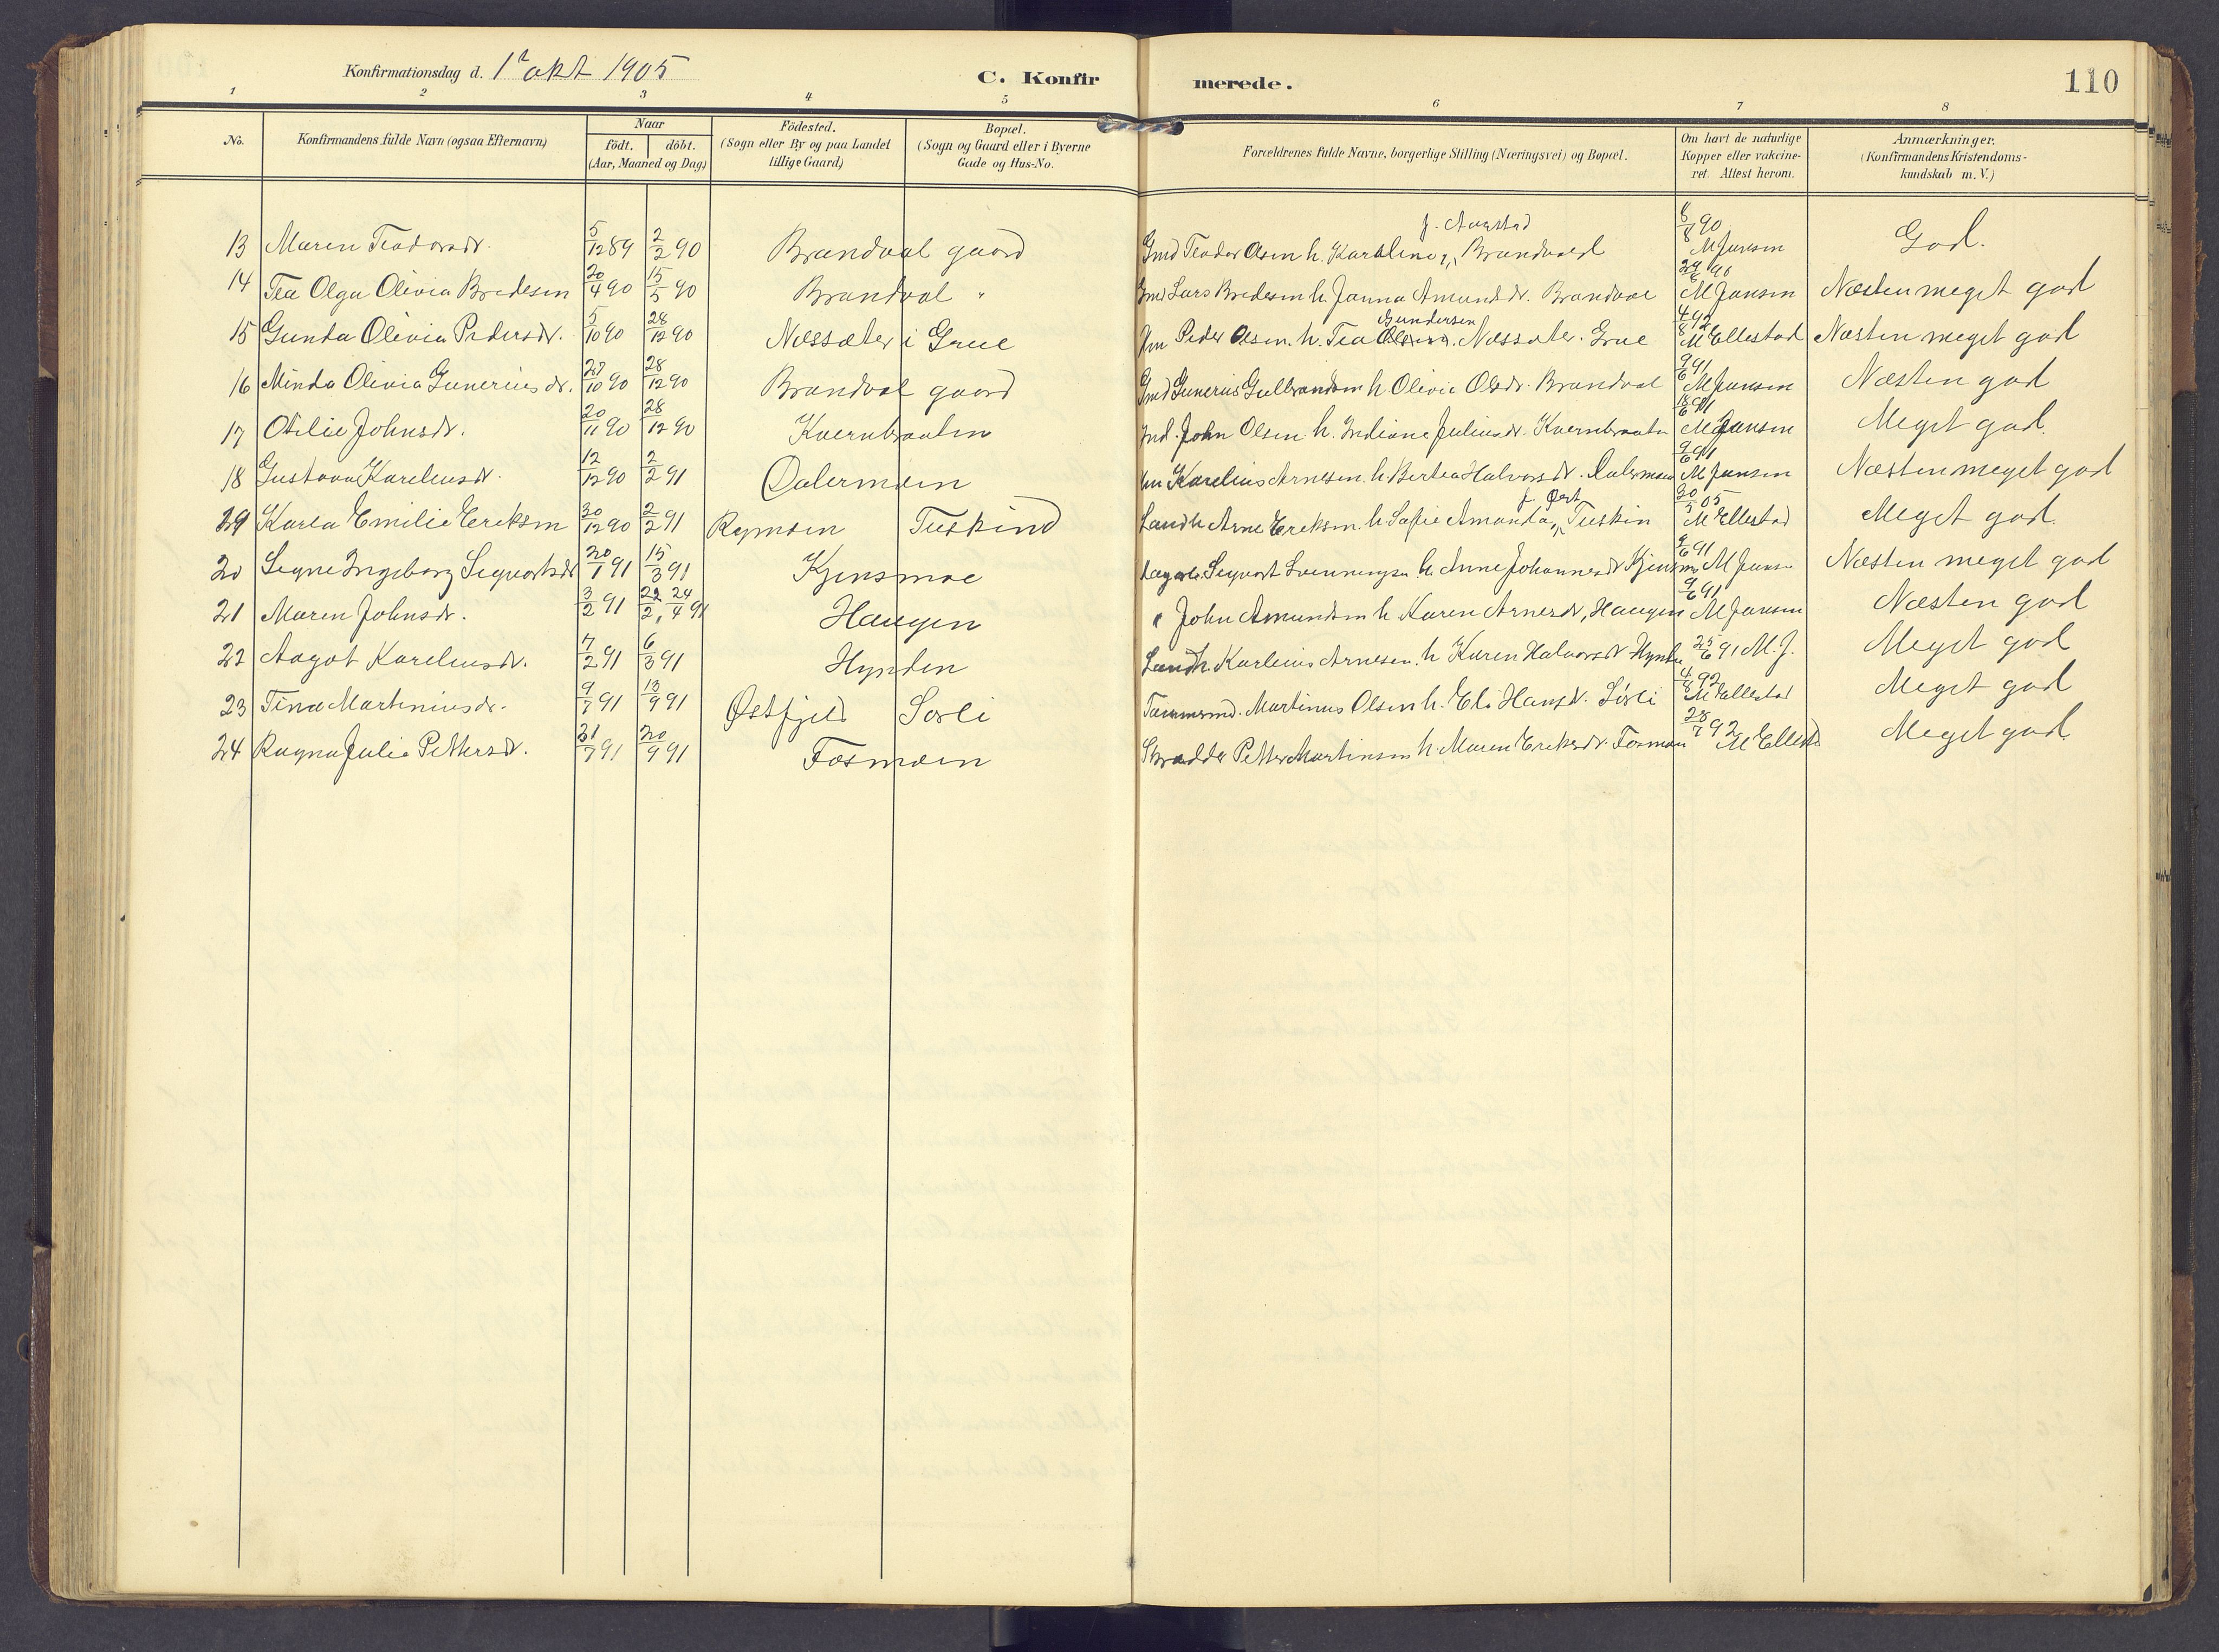 Konfirmationsdag d. 1 okt 1905
C. Konfirmerede.
110
1 2 3 4 5 6 7 8
No. Konfirmandens fulde Navn (ogsaa Efternavn) Naar födt. döbt. (Aar, Maaned og Dag) Födested. (Sogn eller By og paa Landet tillige Gaard) Bopæl. (Sogn og Gaard eller i Byerne Gade og Hus-No. Forældrenes fulde Navne, borgerlige Stilling (Næringsvei) og Bopæl. Om havt de naturlige Kopper eller vakcineret. Attest herom. Anmærkninger. (Konfirmandens Kristendomskundskab m.V.)
13 Maren Teodorsdr. 5/12 89 2/2 90 Brandval gaard Gmd Teodor Olsen h. Karoline f. Aurstad Brandvold 8/8 90 M Jansen God.
14 Tea Olga Olivia Bredesen 20/4 90 15/5 90 Brandval " Gmd Lars Bredesen h. Janna Amundsdr. Brandval 29/6 90 M Jansen Næsten meget god
15 Gunda Olivia Pedersdr. 5/10 90 28/12 90 Næssæter i Grue Peder Olsen h. Tea Gundersen Næssæter. Grue 4/8 92 M Ellestad Næsten meget god
16 Minda Olivia Guneriusdr. 27/10 90 28/12 90 Brandval gaard Gmd Gunerius Gulbrandsen h Olivia Olsdr. Brandval 9/6 91 M Jansen Næsten god
17 Otilie Johnsdr. 20/11 90 28/12 90 Kvernbraaten Ind. John Olsen h. Indiane Juliusdr. Kvernbraaten 18/6 91 M Jansen Meget god.
18 Gustava Kareliusdr. 12/12 90 2/2 91 Dalermoen Karelius Arnesen h. Bertea Halvorsdr. Dalermoen 9/6 91 M Jansen Næsten meget god
19 Karla Emilie Eriksen 30/12 90 2/2 91 Rymoen Tuskind Landh. Arne Eriksen h. Sofie Amanda f. Øest Tuskin 30/5 05 M Ellestad Meget god.
20 Segne Ingeborg Segvartsdr 20/1 91 15/3 91 Kjensmoe Segvart Svenningsn h. Anne Johannesdr Kjensmo 9/6 91 M Jansn Næsten meget god
21 Maren Johnsdr. 3/2 91 22/2, 24/4 91 Haugen " John Amundsen h Karen Arnesdr, Haugen 9/6 91 M Jansen Næsten god
22 Aagot Kareliusdr. 7/2 91 6/3 91 Hynden Landh. Karlenius Arnesen h Karen Halvorsdr Hynden 25/6 91 M. J. Meget god
23 Tina Martiniusdr. 9/7 91 13/9 91 Østfjeld Sorli Tømmermd. Martinus Olsen h. Eli Hansdr. Sörli 4/8 92 M Ellestad Meget god
24 Ragna Julie Pettersdr. 31/7 91 20/9 91 Fosmoen Skrædder Petter Martinsen h. Maren Eriksdr. Fosmoen 28/7 92 M Ellestd Meget god.